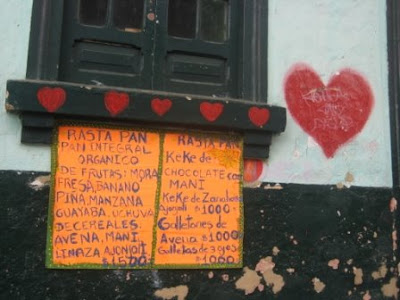 RASTA PAN
PAN INTEGRAL
ORGANICO
DE FRUTAS: MORA
FRESA, BANANO
PIÑA, MANZANA
GUAYABA, UCHUVA
DE CEREALES.
AVENA, MANI,
LINAZA AJONJOLI
$1500
RASTA PAN
KeKe de
CHOCOLATE CON
MANI
KeKe de Zanahoria
ajonjoli $1000
Galletones de
Avena $1000
Galletas de 3
$1000